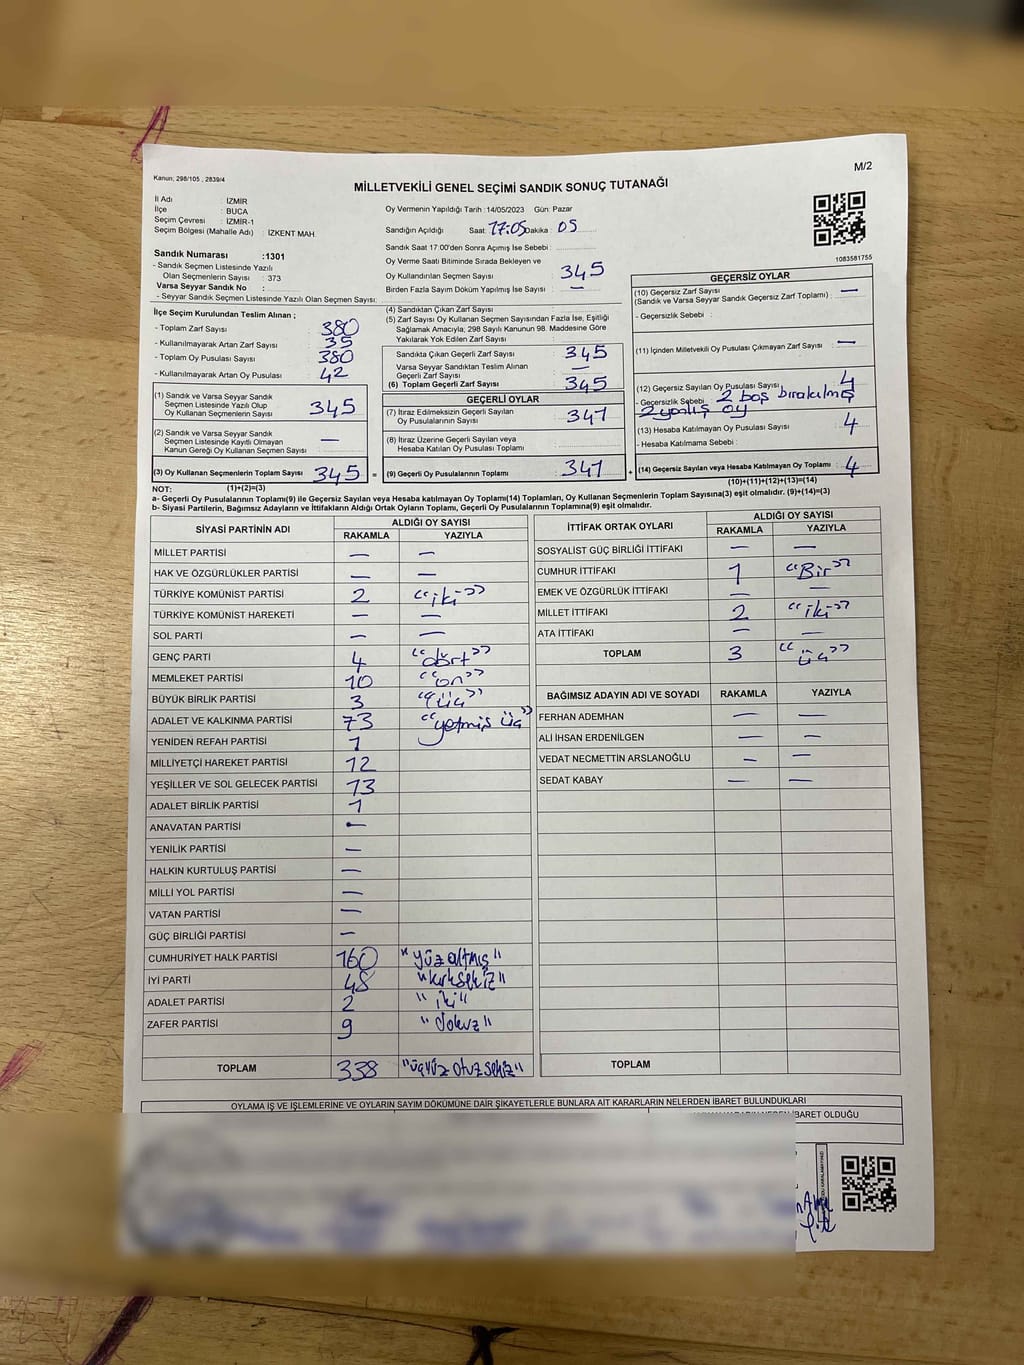 M/2
Kanun; 298/105 , 2839/4
MİLLETVEKİLİ GENEL SEÇİMİ SANDIK SONUÇ TUTANAĞI
İl Adı : İZMİR
İlçe : BUCA
Seçim Çevresi : İZMİR-1
Seçim Bölgesi (Mahalle Adı) : İZKENT MAH.
Sandık Numarası :1301
- Sandık Seçmen Listesinde Yazılı
Olan Seçmenlerin Sayısı : 373
Varsa Seyyar Sandık No :
- Seyyar Sandık Seçmen Listesinde Yazılı Olan Seçmen Sayısı:
Oy Vermenin Yapıldığı Tarih :14/05/2023 Gün: Pazar
Sandığın Açıldığı Saat: 17:05 Dakika : 05
Sandık Saat 17:00'den Sonra Açımış İse Sebebi :
Oy Verme Saati Bitiminde Sırada Bekleyen ve
Oy Kullandırılan Seçmen Sayısı 345
Birden Fazla Sayım Döküm Yapılmış İse Sayısı : —
1083581755
İlçe Seçim Kurulundan Teslim Alınan ;
- Toplam Zarf Sayısı 380
- Kullanılmayarak Artan Zarf Sayısı : 35
- Toplam Oy Pusulası Sayısı 380
- Kullanılmayarak Artan Oy Pusulası 42
(1) Sandık ve Varsa Seyyar Sandık
Seçmen Listesinde Yazılı Olup
Oy Kullanan Seçmenlerin Sayısı 345
(2) Sandık ve Varsa Seyyar Sandık
Seçmen Listesinde Kayıtlı Olmayan
Kanun Gereği Oy Kullanan Seçmen Sayısı —
(3) Oy Kullanan Seçmenlerin Toplam Sayısı 345 =
(1)+(2)=(3)
(4) Sandıktan Çıkan Zarf Sayısı
(5) Zarf Sayısı Oy Kullanan Seçmen Sayısından Fazla İse, Eşitliği
Sağlamak Amacıyla; 298 Sayılı Kanunun 98. Maddesine Göre
Yakılarak Yok Edilen Zarf Sayısı :
Sandıkta Çıkan Geçerli Zarf Sayısı 345
Varsa Seyyar Sandıktan Teslim Alınan
Geçerli Zarf Sayısı —
(6) Toplam Geçerli Zarf Sayısı 345
GEÇERLİ OYLAR
(7) İtiraz Edilmeksizin Geçerli Sayılan
Oy Pusulalarının Sayısı 341
(8) İtiraz Üzerine Geçerli Sayılan veya
Hesaba Katılan Oy Pusulası Toplamı
(9) Geçerli Oy Pusulalarının Toplamı 341 +
GEÇERSİZ OYLAR
(10) Geçersiz Zarf Sayısı —
(Sandık ve Varsa Seyyar Sandık Geçersiz Zarf Toplamı) :
- Geçersizlik Sebebi :
(11) İçinden Milletvekili Oy Pusulası Çıkmayan Zarf Sayısı —
(12) Geçersiz Sayılan Oy Pusulası Sayısı 4
- Geçersizlik Sebebi : 2 boş bırakılmış
2 yanlış oy
(13) Hesaba Katılmayan Oy Pusulası Sayısı 4
- Hesaba Katılmama Sebebi :
(14) Geçersiz Sayılan veya Hesaba Katılmayan Oy Toplamı 4
(10)+(11)+(12)+(13)=(14)
NOT:
a- Geçerli Oy Pusulalarının Toplamı(9) ile Geçersiz Sayılan veya Hesaba katılmayan Oy Toplamı(14) Toplamları, Oy Kullanan Seçmenlerin Toplam Sayısına(3) eşit olmalıdır. (9)+(14)=(3)
b- Siyasi Partilerin, Bağımsız Adayların ve İttifakların Aldığı Ortak Oyların Toplamı, Geçerli Oy Pusulalarının Toplamına(9) eşit olmalıdır.
SİYASİ PARTİNİN ADI ALDIĞI OY SAYISI
RAKAMLA YAZIYLA
MİLLET PARTİSİ — —
HAK VE ÖZGÜRLÜKLER PARTİSİ — —
TÜRKİYE KOMÜNİST PARTİSİ 2 "iki"
TÜRKİYE KOMÜNİST HAREKETİ — —
SOL PARTİ — —
GENÇ PARTİ 4 "dört"
MEMLEKET PARTİSİ 10 "on"
BÜYÜK BİRLİK PARTİSİ 3 "üç"
ADALET VE KALKINMA PARTİSİ 73 "yetmiş üç"
YENİDEN REFAH PARTİSİ 1
MİLLİYETÇİ HAREKET PARTİSİ 12
YEŞİLLER VE SOL GELECEK PARTİSİ 13
ADALET BİRLİK PARTİSİ 1
ANAVATAN PARTİSİ —
YENİLİK PARTİSİ —
HALKIN KURTULUŞ PARTİSİ —
MİLLİ YOL PARTİSİ —
VATAN PARTİSİ —
GÜÇ BİRLİĞİ PARTİSİ —
CUMHURİYET HALK PARTİSİ 160 "yüzaltmış"
İYİ PARTİ 48 "kırksekiz"
ADALET PARTİSİ 2 "iki"
ZAFER PARTİSİ 9 "dokuz"
TOPLAM 338 "üçyüz otuzsekiz"
İTTİFAK ORTAK OYLARI ALDIĞI OY SAYISI
RAKAMLA YAZIYLA
SOSYALİST GÜÇ BİRLİĞİ İTTİFAKI — —
CUMHUR İTTİFAKI 1 "Bir"
EMEK VE ÖZGÜRLÜK İTTİFAKI — —
MİLLET İTTİFAKI 2 "iki"
ATA İTTİFAKI — —
TOPLAM 3 "üç"
BAĞIMSIZ ADAYIN ADI VE SOYADI RAKAMLA YAZIYLA
FERHAN ADEMHAN — —
ALİ İHSAN ERDENİLGEN — —
VEDAT NECMETTİN ARSLANOĞLU — —
SEDAT KABAY — —
TOPLAM
OYLAMA İŞ VE İŞLEMLERİNE VE OYLARIN SAYIM DÖKÜMÜNE DAİR ŞİKAYETLERLE BUNLARA AİT KARARLARIN NELERDEN İBARET BULUNDUKLARI
İBARET OLDUĞU